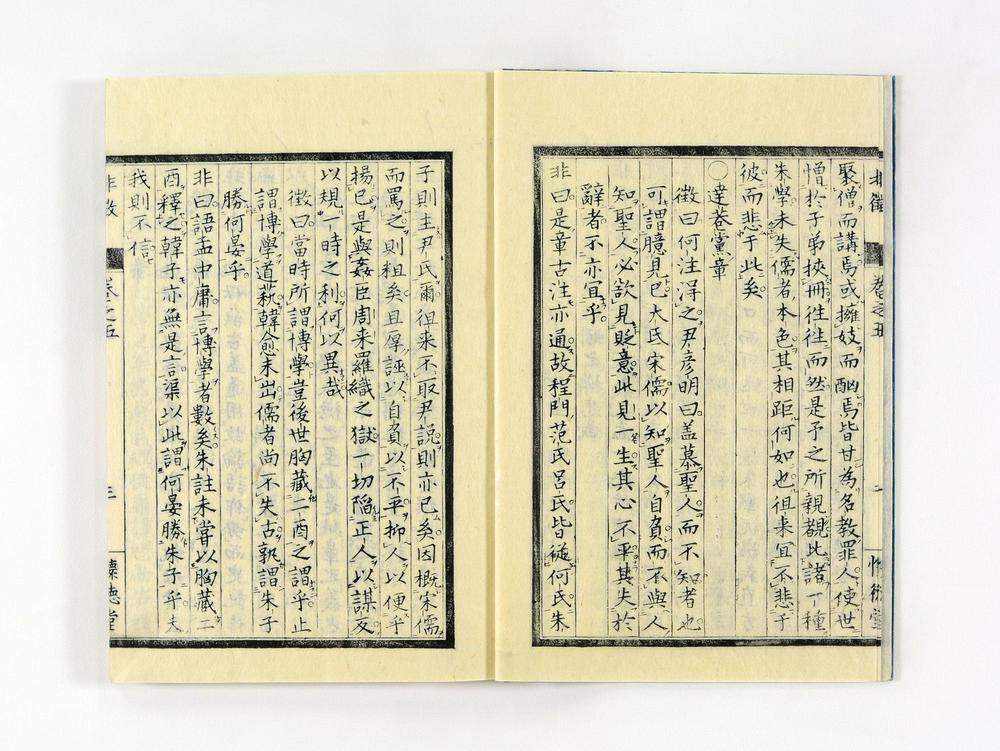 非徵 卷之五 二 懷德堂
聚僧而講焉或擁妓而酗焉皆甘為名教罪人使世
憎於子弟挾冊徃徃而然是予之所親覩比諸一種
朱學未失儒者本色其相距何如也徂来宜不悲于
彼而悲于此矣
〇達巷黨章
徵曰何注淂之尹彦明曰盖慕聖人而不知者也
可謂臆見已大氐宋儒以知聖人自負而不與人
知聖人必欲見貶意此見一生其心不平其失於
辭者不亦宜乎
非曰是章古注亦通故程門范氏呂氏皆從何氏朱
子則主尹氏爾徂来不取尹說則亦已矣因概宋儒
而罵之則粗矣且厚誣以自負以不平抑人以便乎
揚已是與姦臣周来羅織之獄一切陷正人以謀反
以規一時之利何以異哉
徵曰當時所謂博學豈後世胸藏二酉之謂乎止
謂博學道蓺韓愈末出儒者尚不失古孰謂朱子
勝何晏乎
非曰語孟中庸言博學者數矣朱註未嘗以胸藏二
酉釋之韓子亦無是言渠以此謂何晏勝朱子乎夫
我則不信
非徵 卷之五 三 懷德堂